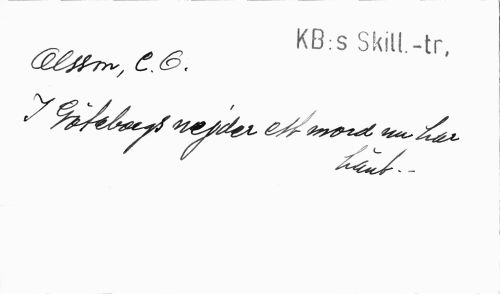 KB:s Skill.-tr,
Olsson, C. O.
I Göteborgs nejder ett mord nu har
händt--